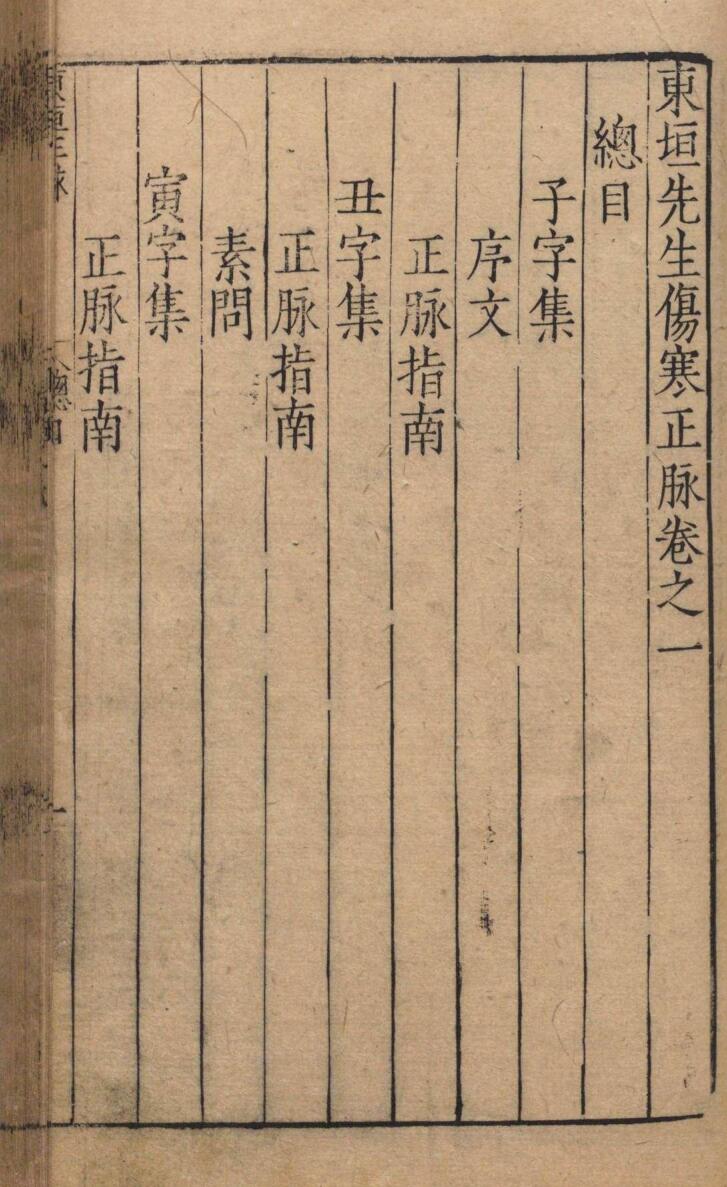 東垣先生傷寒正脉卷之一
總目
子字集
序文
正脉指南
丑字集
正脉指南
素問
寅字集
正脉指南